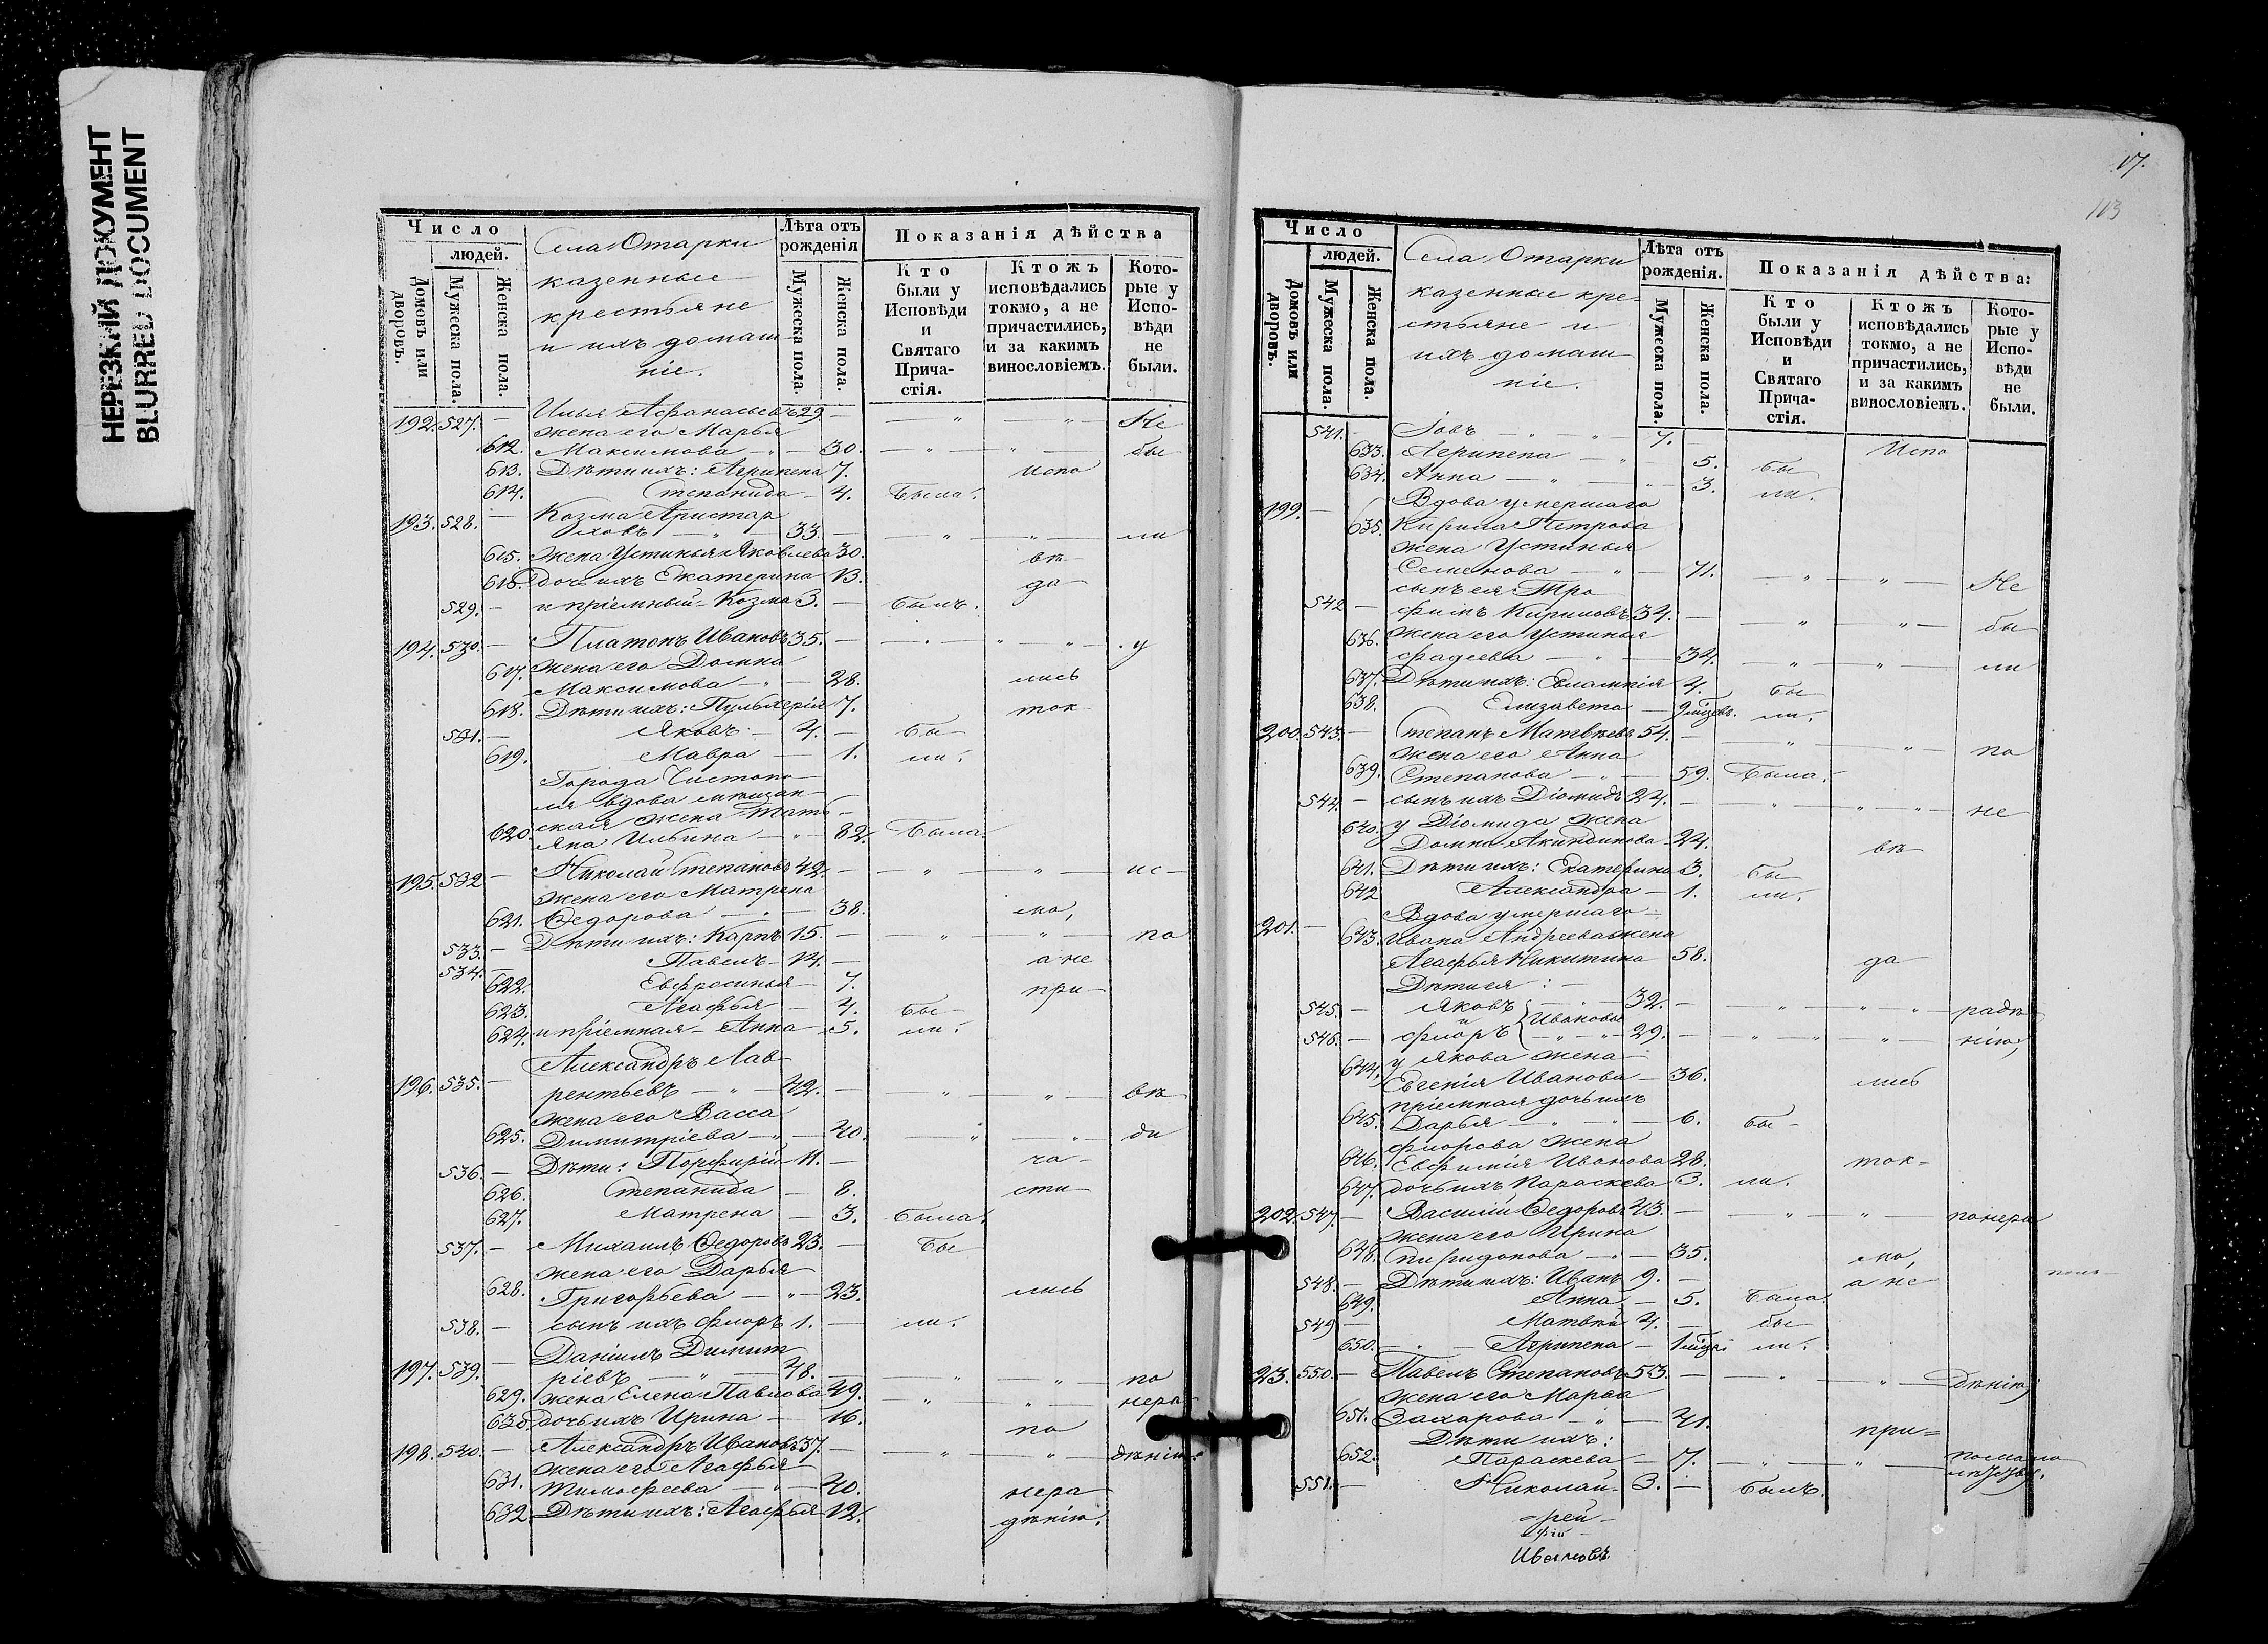 НЕРЕЗКИЙ ДОКУМЕНТ
BLURRED DOCUMENT
Число
людей.
Домовъ или дворовъ.
Мужеска пола.
Женска пола.
Села Отарки
казенные
крестьяне
и ихъ домаш
ніе.
Лѣта отъ рожденія
Мужеска пола.
Женска пола.
Показанія дѣйства
Кто были у Исповѣди и Святаго Прича-стія.
Ктожъ исповѣдались токмо, а не причастились, и за какимъ винословіемъ.
Кото-рые у Испо-вѣди не были.
192. 527. — Илья Афанасьевъ 29. — — " — " — Не
жена его Марья
612. Максимова — " — 30. — " — " — бы
613. Дѣти ихъ: Агрипена 7. Испо
614. Степанида — 4. Была.
193. 528. — Козма Аристар
ховъ — " — 33. — — " — " — ли
615. Жена Устинья Яковлева 30. вѣ
616. дочь ихъ Екатерина 13. да
529. — и пріемный Козма 3. — Былъ.
194. 530. — Платонъ Ивановъ 35. — — " — " — у
617. жена его Домна
Максимова — " — 28. лись
618. Дѣти ихъ: Пульхерія 7. ток
531. — Яковъ — 4. — Бы
619. Мавра — 1. ли.
Города Чистопо
ля вдова мѣщан
ская жена Тать
620. яна Ильина — " — 82. Была.
195. 532 — Николай Степановъ 42. — — " — " — ис
жена его Матрена
621. Ѳедорова — " — 38. мо,
533. — Дѣти ихъ: Карпъ 15. — — " — " — по
534. — Павелъ — 14. — а не
622. Евфросинья — 7. при
623. Агафья — 4. Бы
624. и пріемная — Анна 5. ли.
Александръ Лав
196. 535. — рентьевъ — " — 42. — — " — " — вѣ
жена его Васса
625. Димитріева — " — 40. — " — " — ди
536. — Дѣти: Порфирій 11. — ча
626. Степанида — 8. сти
627. Матрена — 3. Была.
537. — Михаилъ Ѳедоровъ 23. — Бы
жена его Дарья
628. Григорьева — " — 23. лись
538. — сынъ ихъ Флоръ 1. — ли.
Даніилъ Димит
197. 539. — ріевъ — " — 48. — — " — " — по
629. жена Елена Павлова 49. — " — " — нера
630. дочь ихъ Ирина — 16. по
198. 540. — Александръ Ивановъ 37. — — " — " — дѣнію.
жена его Агафья
631. Тимофеева — " — 40. нера
632. Дѣти ихъ: Агафья 12. дѣнію.
17.
113
Число
людей.
Домовъ или дворовъ.
Мужеска пола.
Женска пола.
Села Отарки
казенные кре-
стьяне и
ихъ домаш
ніе.
Лѣта отъ рожденія.
Мужеска пола.
Женска пола.
Показанія дѣйства:
Кто были у Исповѣди и Святаго Прича-стія.
Ктожъ исповѣдались токмо, а не причастились, и за какимъ винословіемъ.
Кото-рые у Испо-вѣди не были.
541. — Іовъ — " — " — 7. — Испо
633. Агрипена — " — 5. Бы
634. Анна — " — " — 3. ли.
199. — Вдова умершаго
635. Кирила Петрова
жена Устинья
Семенова — " — 71. — " — " — Не
сынъ ея Тро
542 — фимъ Кириловъ 34. — — " — " — бы
636. жена его Устинья
Фадеева — " — 34. — " — " — ли
637. Дѣти ихъ: Евлампія 4. Бы
638. Елизавета — 9 мѣсяц. ли.
200. 543. — Степанъ Матвѣевъ 54. — — " — " — по
жена его Анна
639. Степанова — " — 59. Была.
544. — сынъ ихъ Діомидъ 24. — — " — " — не
640. у Діомида жена
Домна Акиндинова 24. вѣ
641. Дѣти ихъ: Екатерина 3. Бы
642 Александра — 1. ли.
Вдова умершаго
201. — 643. Ивана Андреева жена
Агафья Никитина 58. да
Дѣти ея: —
545. — Яковъ — " — 32. — — " — " — радѣ
и Ивановы
546. — Флоръ — " — 29. — — " — " — нію,
644. у Якова жена
Евгенія Иванова — 36. лись
пріемная дочь ихъ
645. Дарья — " — " — 6. Бы
Флорова жена
646. Евфимія Иванова 28. ток
647. дочь ихъ Параскева 3. ли.
202. 547. — Василій Ѳедоровъ 43. — — " — " — по нера
жена его Ирина
648. Спиридонова — " — 35. мо,
548. — Дѣти ихъ: Иванъ 9. — а не
649. Анна — 5. Была.
549 — Матвѣй 4. — бы
650. — " — Агрипена — 1 мѣсяц. ли.
23. 550. — Павелъ Степановъ 53. — — " — " — дѣнію;
жена его Марья
651. Захарова — " — 41. при
Дѣти ихъ:
652. Параскева — 7. — " — " — по мало
лѣтству.
551. — Николай 3. — Былъ.
рей
Ивановъ